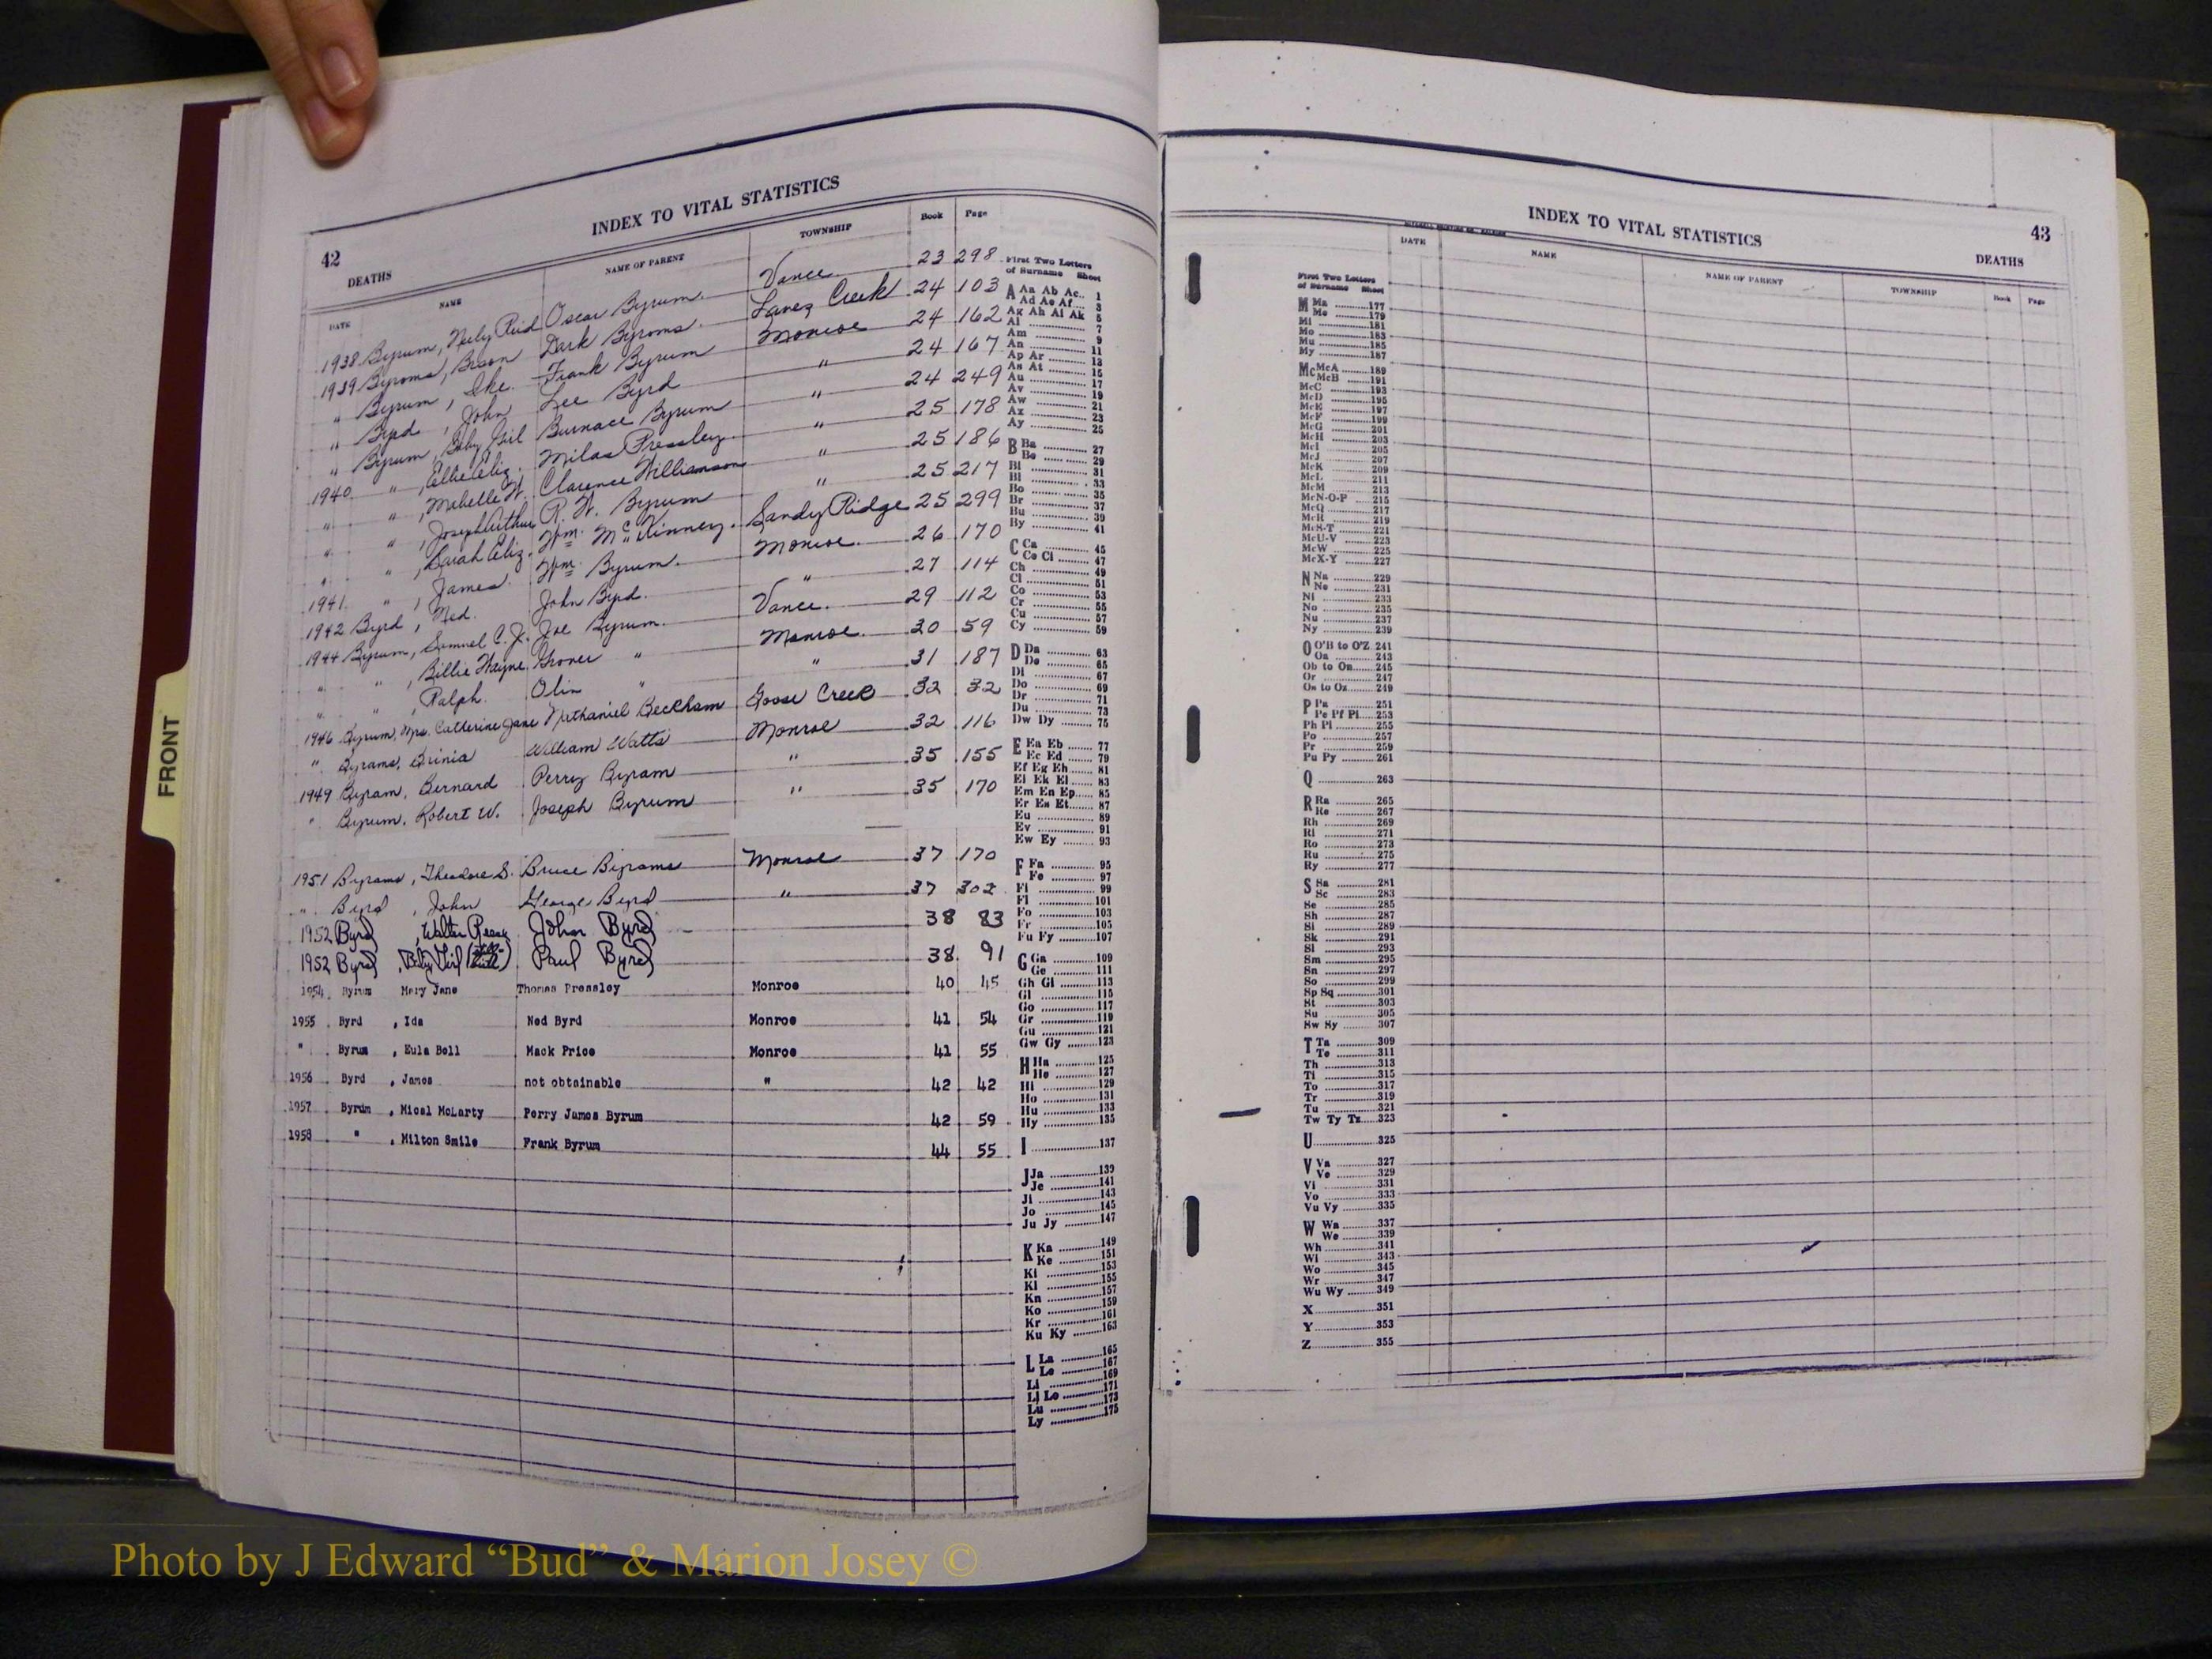 FRONT
42
INDEX TO VITAL STATISTICS
DEATHS
DATE NAME NAME OF PARENT TOWNSHIP Book Page
1938 Byrum, Reid Oscar Byrum Vance 23 298
1939 Byroms, Bison Dark Byroms Lanes Creek 24 103
" Byrum, Ike. Frank Byrum Monroe 24 162
" Byrd, John Lee Byrd " 24 167
" Byrum, Baby Girl Burnace Byrum " 24 249
1940 " , Ellie Eliz. Milas Pressley " 25 178
" " , Mabelle W. Clarence Williamson " 25 186
" " , Joseph Arthur R. W. Byrum " 25 217
" " , Sarah Eliz. Wm. McKinney Sandy Ridge 25 299
1941 " , James Wm. Byrum Monroe 26 170
1942 Byrd, Ned. John Byrd " 27 114
1944 Byrum, Samuel C. Jr. Joe Byrum Vance 29 112
" " , Billie Wayne Grover " Monroe 30 59
" " , Ralph. Olin " " 31 187
1946 Byrum, Mrs. Catherine Jane Nathaniel Beckham Goose Creek 32 32
" Byrams, Brinia William Watts Monroe 32 116
1949 Byram, Bernard Perry Byram " 35 155
" Byrum, Robert W. Joseph Byrum " 35 170
1951 Byrams, Theodore S. Bruce Byrams Monroe 37 170
" Byrd, John George Byrd " 37 302
1952 Byrd, Walter Reese John Byrd 38 83
1952 Byrd, Baby Girl Paul Byrd 38 91
1954 Byrum Mary Jane Thomas Pressley Monroe 40 45
1955 Byrd , Ida Ned Byrd Monroe 41 54
" Byrum , Eula Bell Mack Price Monroe 41 55
1956 Byrd , James not obtainable " 42 42
1957 Byrum , Mical McLarty Perry James Byrum 42 59
1958 " , Milton Smile Frank Byrum 44 55
First Two Letters
of Surname Sheet
A Aa Ab Ac.. 1
Ad Ae Af.... 3
Ag Ah Ai Ak 5
Al .......... 7
Am .......... 9
An .......... 11
Ap Ar ....... 13
As At ....... 15
Au .......... 17
Av .......... 19
Aw .......... 21
Ax .......... 23
Ay .......... 25
B Ba ........ 27
Be .......... 29
Bi .......... 31
Bl .......... 33
Bo .......... 35
Br .......... 37
Bu .......... 39
By .......... 41
C Ca ........ 45
Ce Ci ....... 47
Ch .......... 49
Cl .......... 51
Co .......... 53
Cr .......... 55
Cu .......... 57
Cy .......... 59
D Da ........ 63
De .......... 65
Di .......... 67
Do .......... 69
Dr .......... 71
Du .......... 73
Dw Dy ....... 75
E Ea Eb ..... 77
Ec Ed ....... 79
Ef Eg Eh .... 81
Ei Ek El .... 83
Em En Ep .... 85
Er Es Et .... 87
Eu .......... 89
Ev .......... 91
Ew Ey ....... 93
F Fa ........ 95
Fe .......... 97
Fi .......... 99
Fl .......... 101
Fo .......... 103
Fr .......... 105
Fu Fy ....... 107
G Ga ........ 109
Ge .......... 111
Gh Gi ....... 113
Gl .......... 115
Go .......... 117
Gr .......... 119
Gu .......... 121
Gw Gy ....... 123
H Ha ........ 125
He .......... 127
Hi .......... 129
Ho .......... 131
Hu .......... 133
Hy .......... 135
I ........... 137
J Ja ........ 139
Je .......... 141
Ji .......... 143
Jo .......... 145
Ju Jy ....... 147
K Ka ........ 149
Ke .......... 151
Ki .......... 153
Kl .......... 155
Kn .......... 157
Ko .......... 159
Kr .......... 161
Ku Ky ....... 163
L La ........ 165
Le .......... 167
Li .......... 169
Lj Lo ....... 171
Lu .......... 173
Ly .......... 175
INDEX TO VITAL STATISTICS
43
DEATHS
DATE NAME NAME OF PARENT TOWNSHIP Book Page
First Two Letters
of Surname Sheet
M Ma ........ 177
Me .......... 179
Mi .......... 181
Mo .......... 183
Mu .......... 185
My .......... 187
Mc McA ...... 189
McB ......... 191
McC ......... 193
McD ......... 195
McE ......... 197
McF ......... 199
McG ......... 201
McH ......... 203
McI ......... 205
McJ ......... 207
McK ......... 209
McL ......... 211
McM ......... 213
McN-O-P ..... 215
McQ ......... 217
McR ......... 219
McS-T ....... 221
McU-V ....... 223
McW ......... 225
McX-Y ....... 227
N Na ........ 229
Ne .......... 231
Ni .......... 233
No .......... 235
Nu .......... 237
Ny .......... 239
O O'B to O'Z. 241
Oa .......... 243
Ob to On..... 245
Or .......... 247
Os to Oz..... 249
P Pa ........ 251
Pe Pf Pi.... 253
Ph Pl ....... 255
Po .......... 257
Pr .......... 259
Pu Py ....... 261
Q ........... 263
R Ra ........ 265
Re .......... 267
Rh .......... 269
Ri .......... 271
Ro .......... 273
Ru .......... 275
Ry .......... 277
S Sa ........ 281
Sc .......... 283
Se .......... 285
Sh .......... 287
Si .......... 289
Sk .......... 291
Sl .......... 293
Sm .......... 295
Sn .......... 297
So .......... 299
Sp Sq ....... 301
St .......... 303
Su .......... 305
Sw Sy ....... 307
T Ta ........ 309
Te .......... 311
Th .......... 313
Ti .......... 315
To .......... 317
Tr .......... 319
Tu .......... 321
Tw Ty Tz..... 323
U............ 325
V Va ........ 327
Ve .......... 329
Vi .......... 331
Vo .......... 333
Vu Vy ....... 335
W Wa ........ 337
We .......... 339
Wh .......... 341
Wi .......... 343
Wo .......... 345
Wr .......... 347
Wu Wy ....... 349
X............ 351
Y............ 353
Z............ 355
Photo by J Edward “Bud” & Marion Josey ©